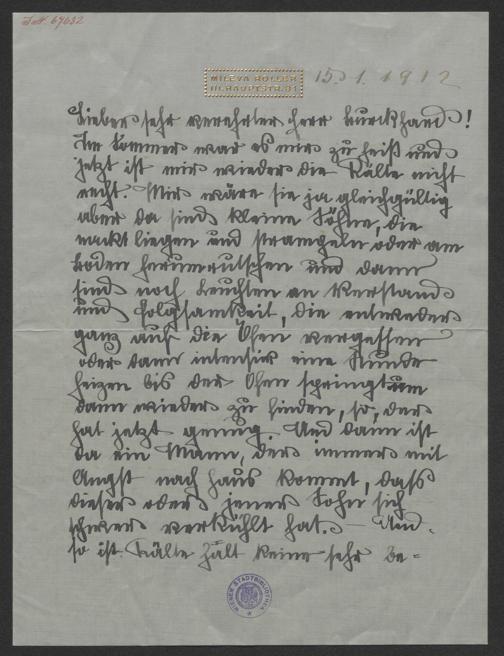 J.N. 67632
MILEVA ROLLER
III. HAUPTSTR. 91
15. 1. 1912
Lieber sehr verehrter Herr Burckhard!
Im Sommer war es mir zu heiß und
jetzt ist mir wieder die Kälte nicht
recht. Mir wäre sie ja gleichgültig
aber da sind kleine Söhne, die
nackt liegen und strampeln oder am
Boden herumrutschen und dann
sind noch Leuchten an Verstand
und Folgsamkeit, die entweder
ganz auf die Öfen vergessen
oder dann intensiv eine Stunde
heizen bis der Ofen springt um
dann wieder zu finden, so, der
hat jetzt genug. Und dann ist
da ein Mann, der immer mit
Angst nach Haus kommt, daß
dieser oder jener Sohn sich
schwer verkühlt hat. – Und
so ist Kälte halt keine sehr be=
WIENER STADTBIBLIOTHEK